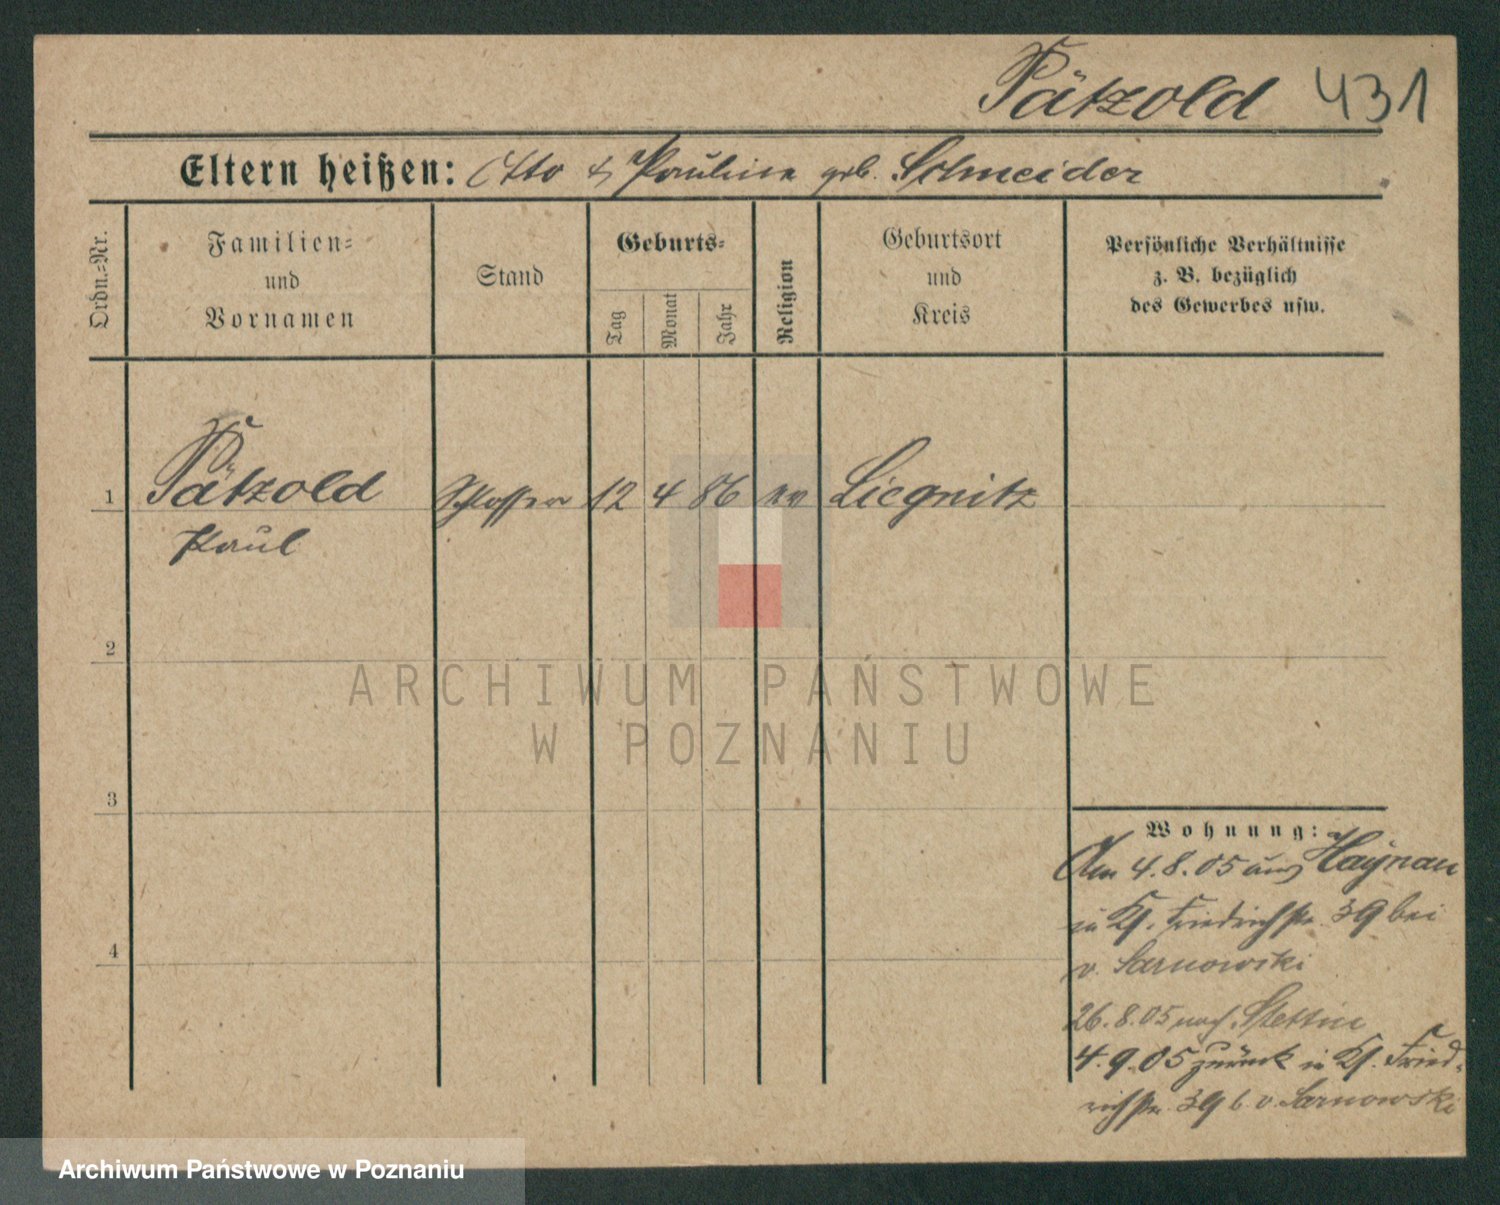 Pätzold 431
Eltern heißen: Otto & Pauline geb. Schneider
Ordn.=Nr.
Familien=
und
Vornamen
Stand
Geburts=
Tag
Monat
Jahr
Religion
Geburtsort
und
Kreis
Persönliche Verhältnisse
z. B. bezüglich
des Gewerbes usw.
1 Pätzold Schlosser 12 4 86 ev Liegnitz
Paul
2
3
4
Wohnung:
Am 4.8.05 aus Haynau
in Kl. Friedrichstr. 39 bei
v. Sarnowski
26.8.05 nach Stettin
4.9.05 zurück in Kl. Fried-
richstr. 39 b. v. Sarnowski
ARCHIWUM PAŃSTWOWE
W POZNANIU
Archiwum Państwowe w Poznaniu